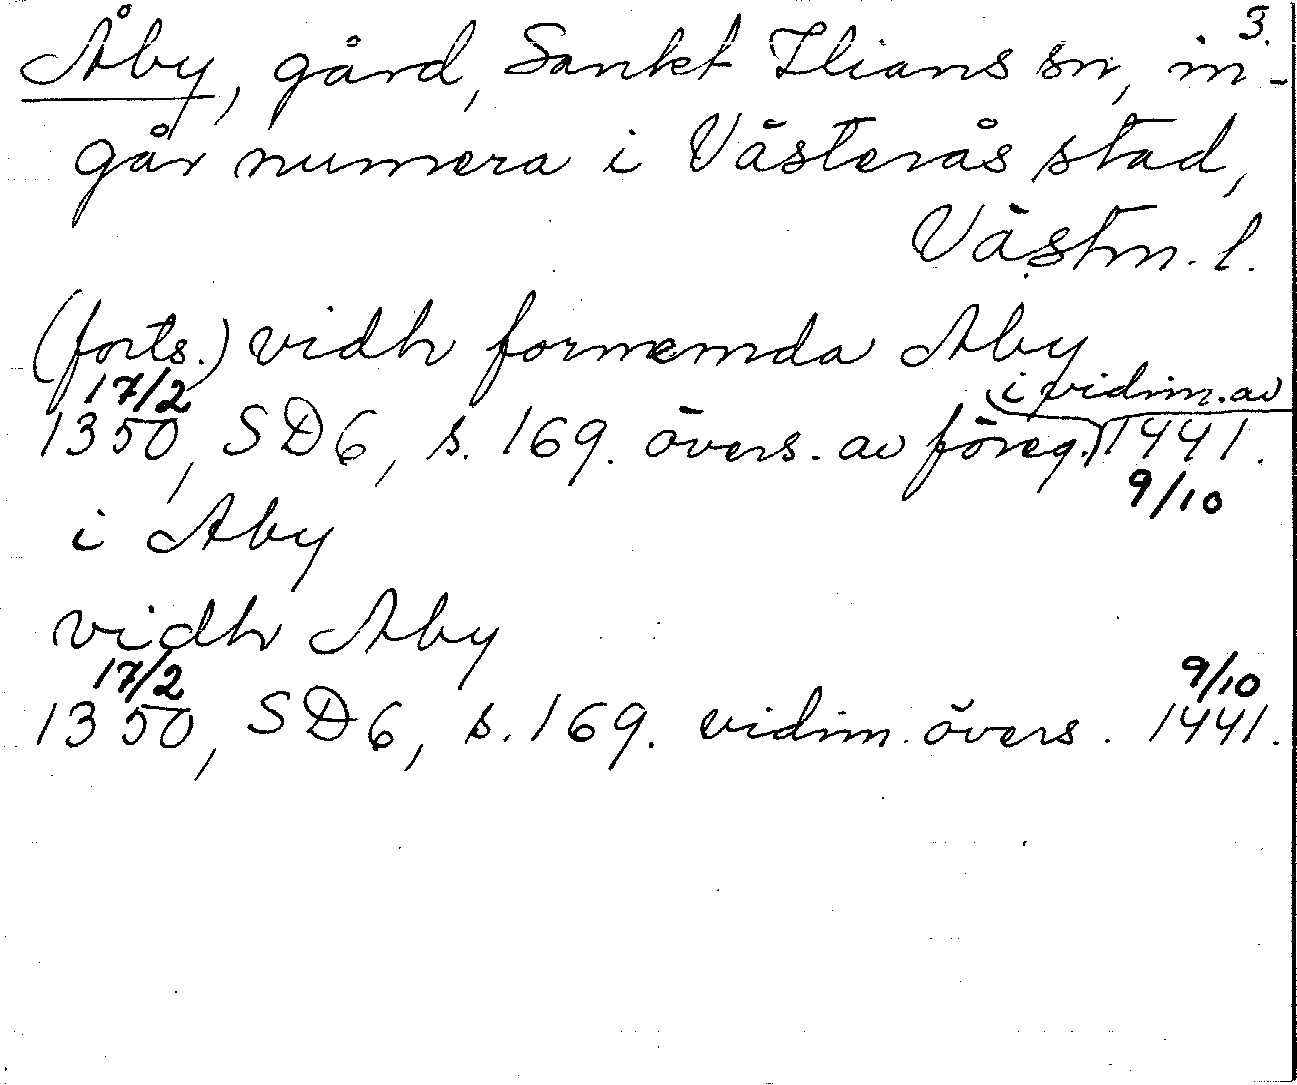 3.
Åby, gård, Sankt Ilians sn, in-
går numera i Västerås stad,
Västm. l.
(forts.) vidh fornemda Aby
17/2 i vidim. av
1350, SD6, s. 169. övers. av föreg.) 1441.
9/10
i Aby
vidh Aby
17/2 9/10
1350, SD6, s. 169. vidim. övers. 1441.